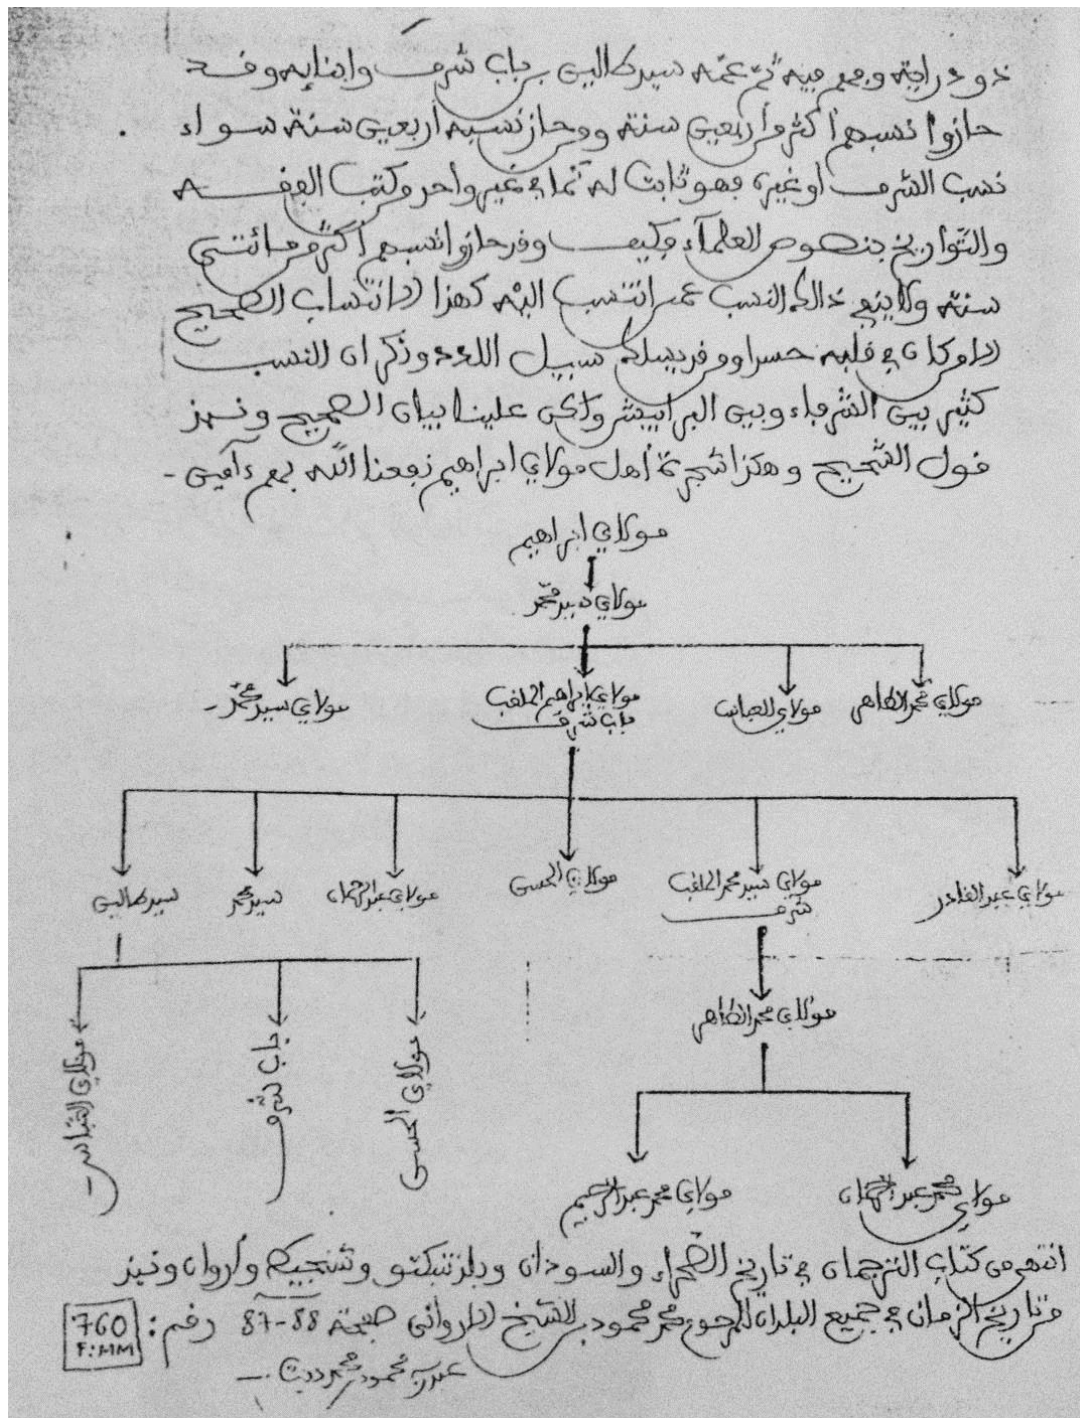 ذو دراية وجمع فيه ثم عمه سيد طالبن بن باب شرف وابنايه وقد
حازوا نسبهم أكثر من أربعين سنة ومن حاز نسبه أربعين سنة سواء
نسب الشرف أو غيره فهو ثابت له كما في غير واحد من كتب الفقه
والتواريخ بنصوص العلماء فكيف وقد حازوا نسبهم أكثر من مائتي
سنة ولا ينفي ذالك النسب عمن انتسب إليه كهذا الانتساب الصحيح
إلا من كان في قلبه حسدا ومن سبيل وذكر ان النسب
كثير بين الشرفاء وبين البرابيش ولكن علينا بيان الصحيح ونبذ
قول الشحيح وهكذا شجرة أهل مولاي ابراهيم نفعنا الله بهم ءامين -
مولاي ابراهيم
مولاي سيد محمد
مولاي محمد الطاهر
مولاي العباس
مولاي ابراهيم الملقب
باب شرف
مولاي سيد محمد -
مولاي عبد القادر
مولاي سيد محمد الملقب
شرف
مولاي الحسن
مولاي عبد الرحمان
سيد محمد
سيد طالبن
مولاي محمد الطاهر
مولاي الحسن
باب شرف
مولاي العباس
مولاي محمد عبد الرحمان
مولاي محمد عبد الرحيم
انتهى من كتاب الترجمان في تاريخ الصحراء والسودان وبلد تنبكتو وشنجيط وأروان ونبذ
من تاريخ الزمان في جميع البلدان للمرحوم محمد محمود بن الشيخ الارواني صفحة 88-87 رقم:
760
F:MM